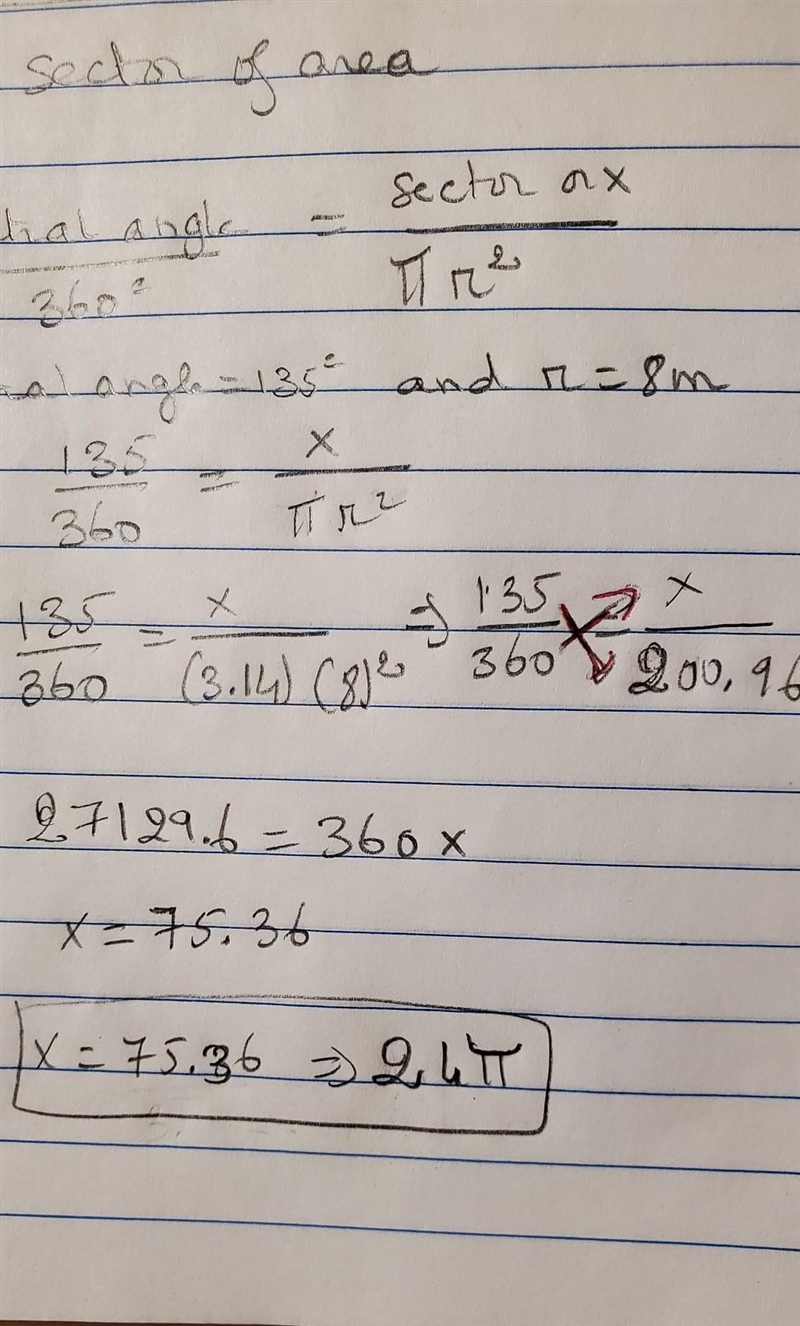 sector of area
tral angle / 360° = sector or x / πr²
al angle = 135° and r = 8m
135/360 = x/πr²
135/360 = x/(3.14)(8)² ⇒ 135/360 = x/200.96
27129.6 = 360x
x = 75.36
x = 75.36 ⇒ 24π